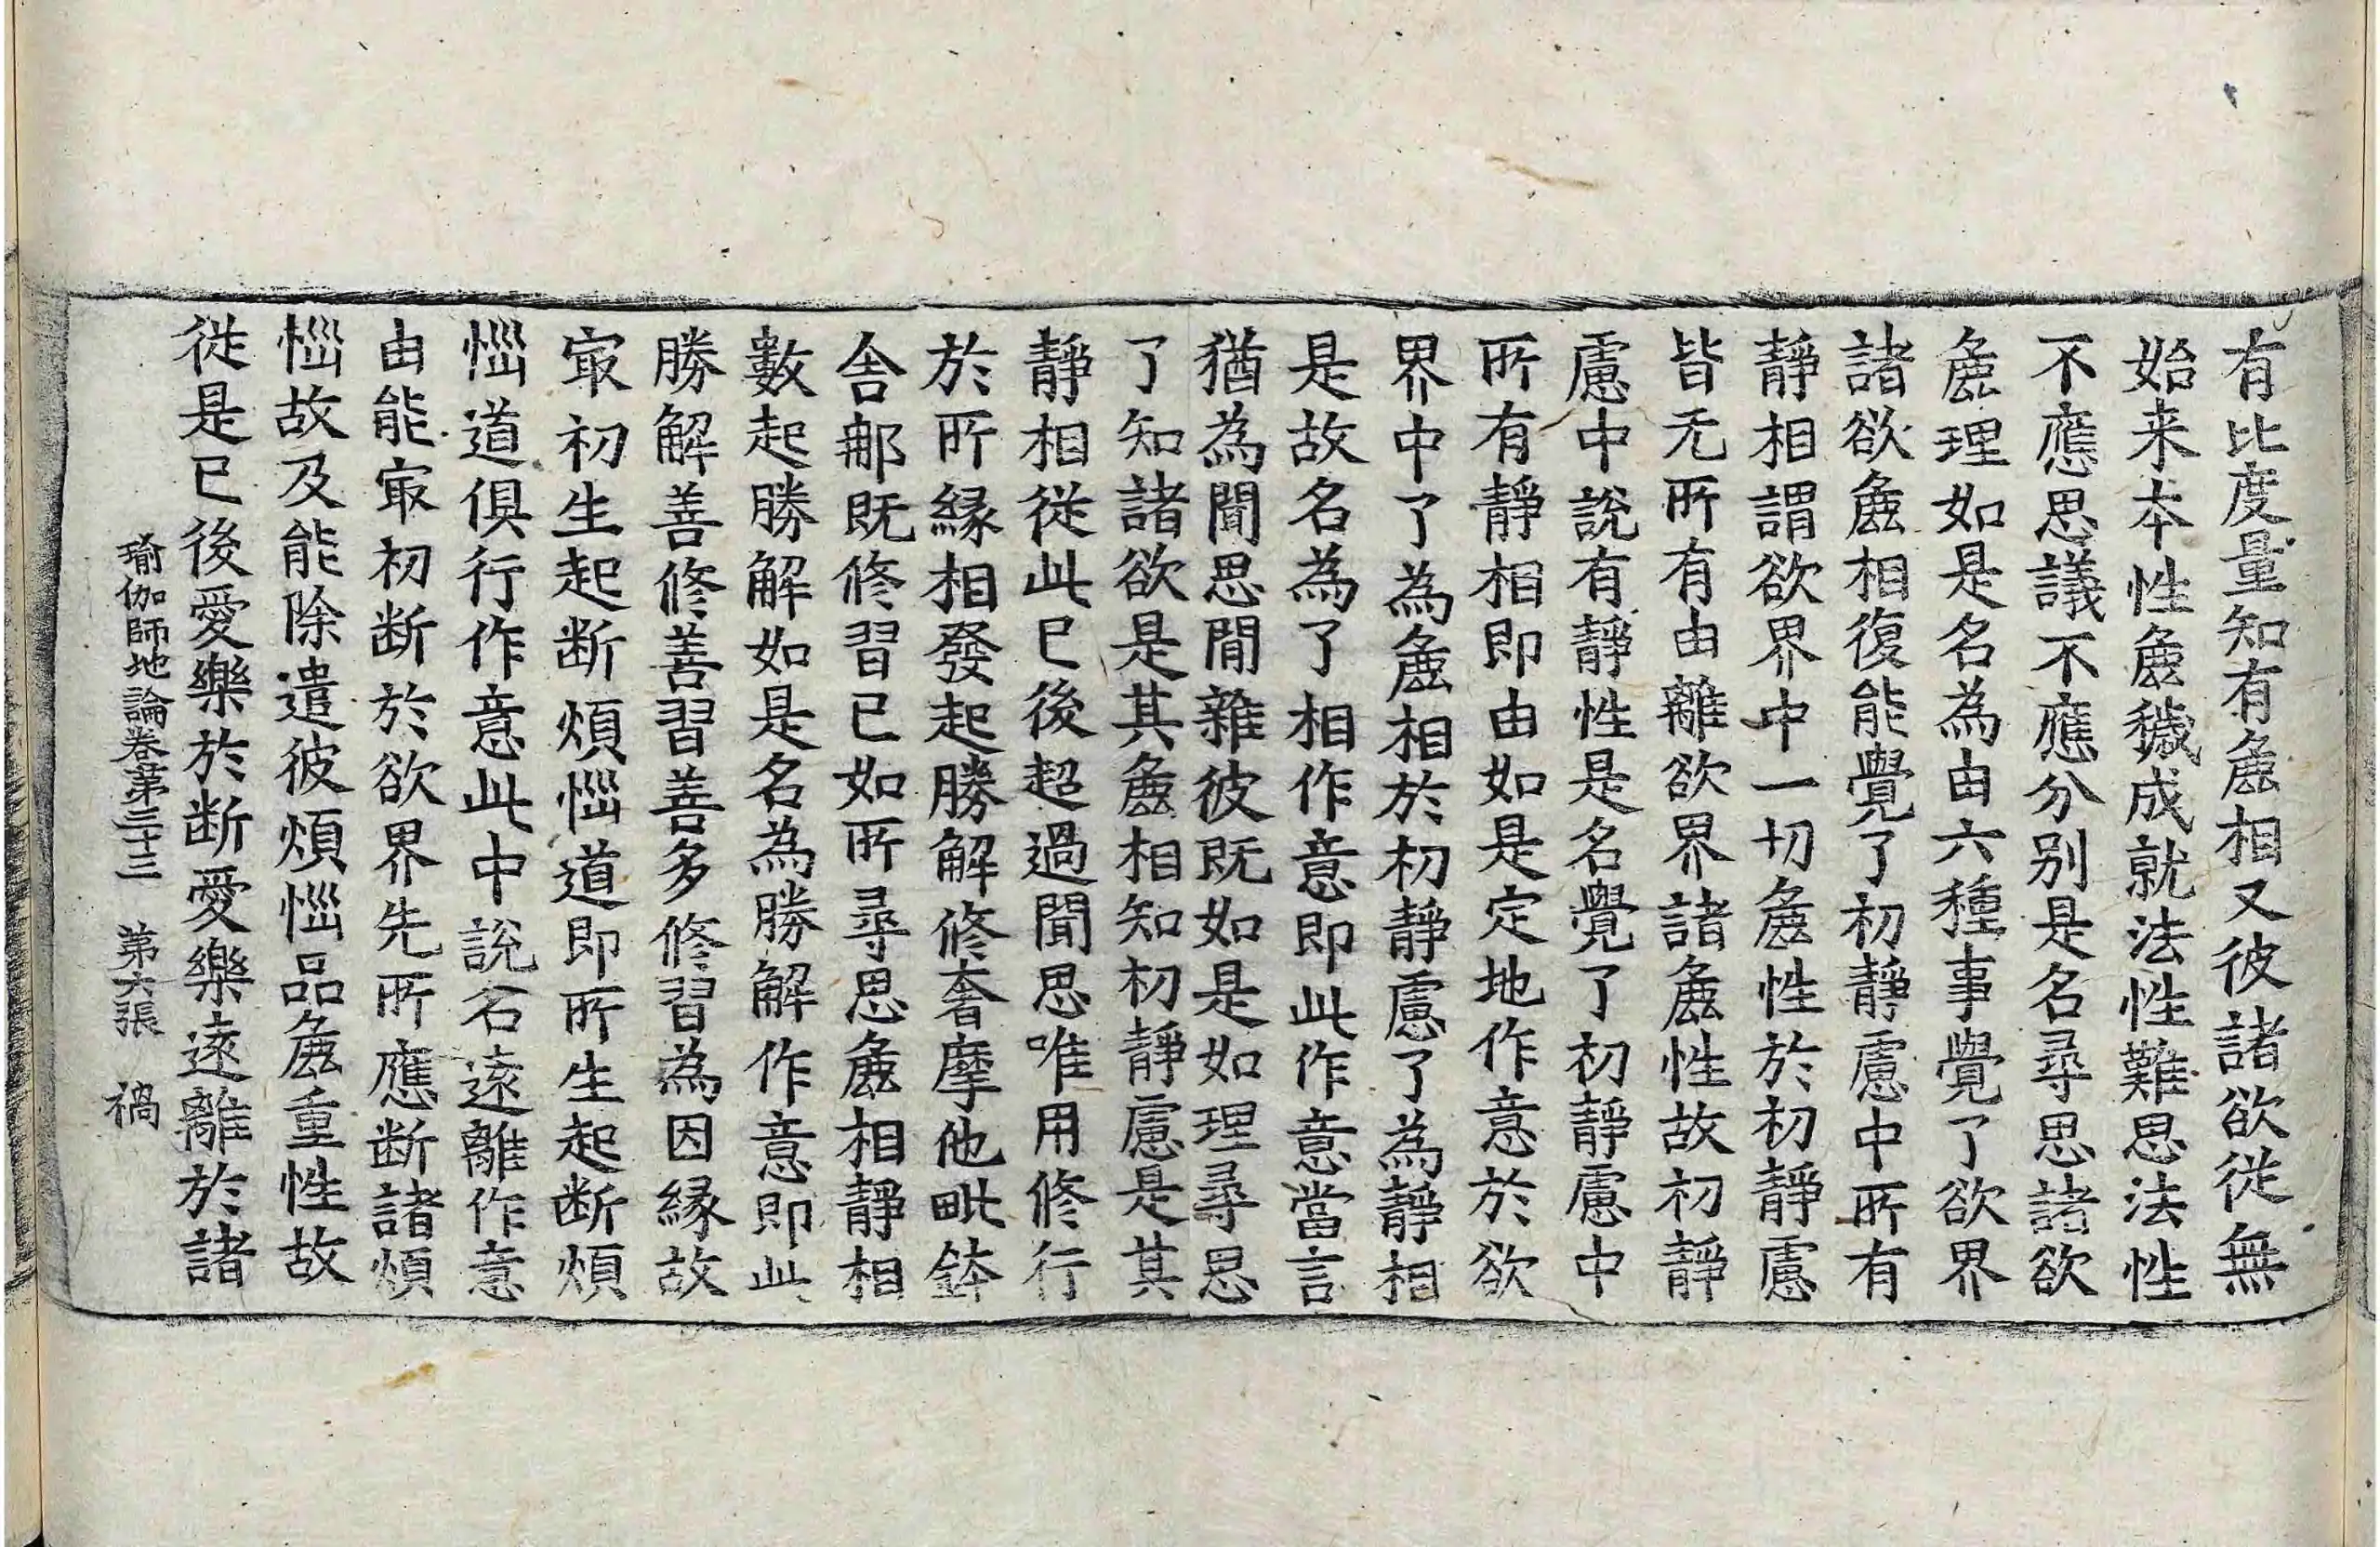 有比度量知有麁相又彼諸欲從無
始来本性麁穢成就法性難思法性
不應思議不應分別是名尋思諸欲
麁理如是名為由六種事覺了欲界
諸欲麁相復能覺了初靜慮中所有
靜相謂欲界中一切麁性於初靜慮
皆无所有由離欲界諸麁性故初靜
慮中說有靜性是名覺了初靜慮中
所有靜相即由如是定地作意於欲
界中了為麁相於初靜慮了為靜相
是故名為了相作意即此作意當言
猶為聞思間雜彼既如是如理尋思
了知諸欲是其麁相知初靜慮是其
靜相從此已後超過聞思唯用修行
於所緣相發起勝解修奢摩他毗鉢
舍那既修習已如所尋思麁相靜相
數起勝解如是名為勝解作意即此
勝解善修善習善多修習為因緣故
㝡初生起断煩惱道即所生起断煩
惱道俱行作意此中說名遠離作意
由能㝡初断於欲界先所應断諸煩
惱故及能除遣彼煩惱品麁重性故
從是已後愛樂於断愛樂遠離於諸
瑜伽師地論卷第三十三　第六張　禍